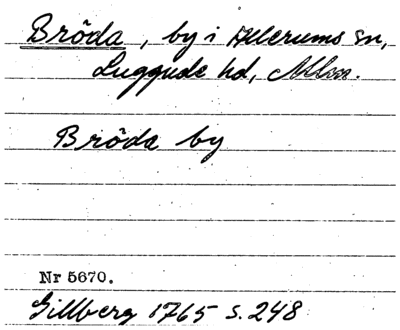 Bröda, by i Allerums sn,
Luggude hd, Mlm.
Bröda by
Nr 5670.
Gillberg 1765 s. 248